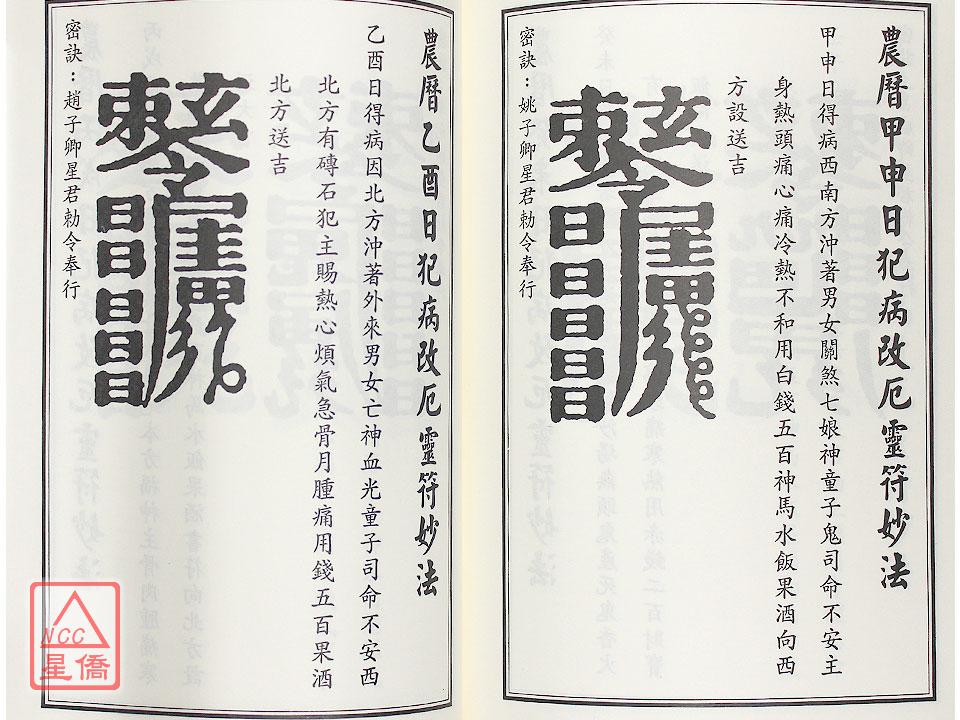 農曆甲申日犯病改厄靈符妙法
甲申日得病西南方沖著男女關煞七娘神童子鬼司命不安主
身熱頭痛心痛冷熱不和用白錢五百神馬水飯果酒向西
方設送吉
密訣：姚子卿星君勅令奉行
農曆乙酉日犯病改厄靈符妙法
乙酉日得病因北方沖著外來男女亡神血光童子司命不安西
北方有磚石犯主賜熱心煩氣急骨月腫痛用錢五百果酒
北方送吉
密訣：趙子卿星君勅令奉行
NCC
星僑